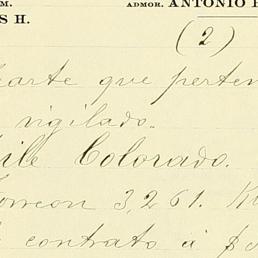 M.
ADMOR. ANTONIO
S H.
(2)
parte que perten
vigilado.
Chile Colorado.
Torreon 3,261. K
contrato á $